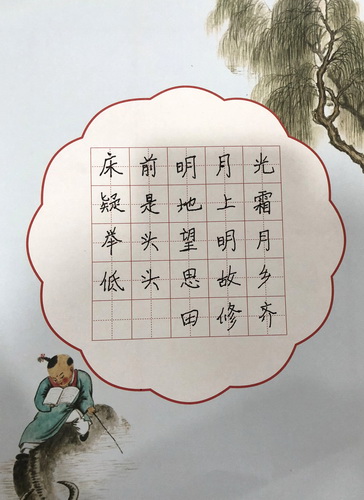 床前明月光
疑是地上霜
举头望明月
低头思故乡
田修齐